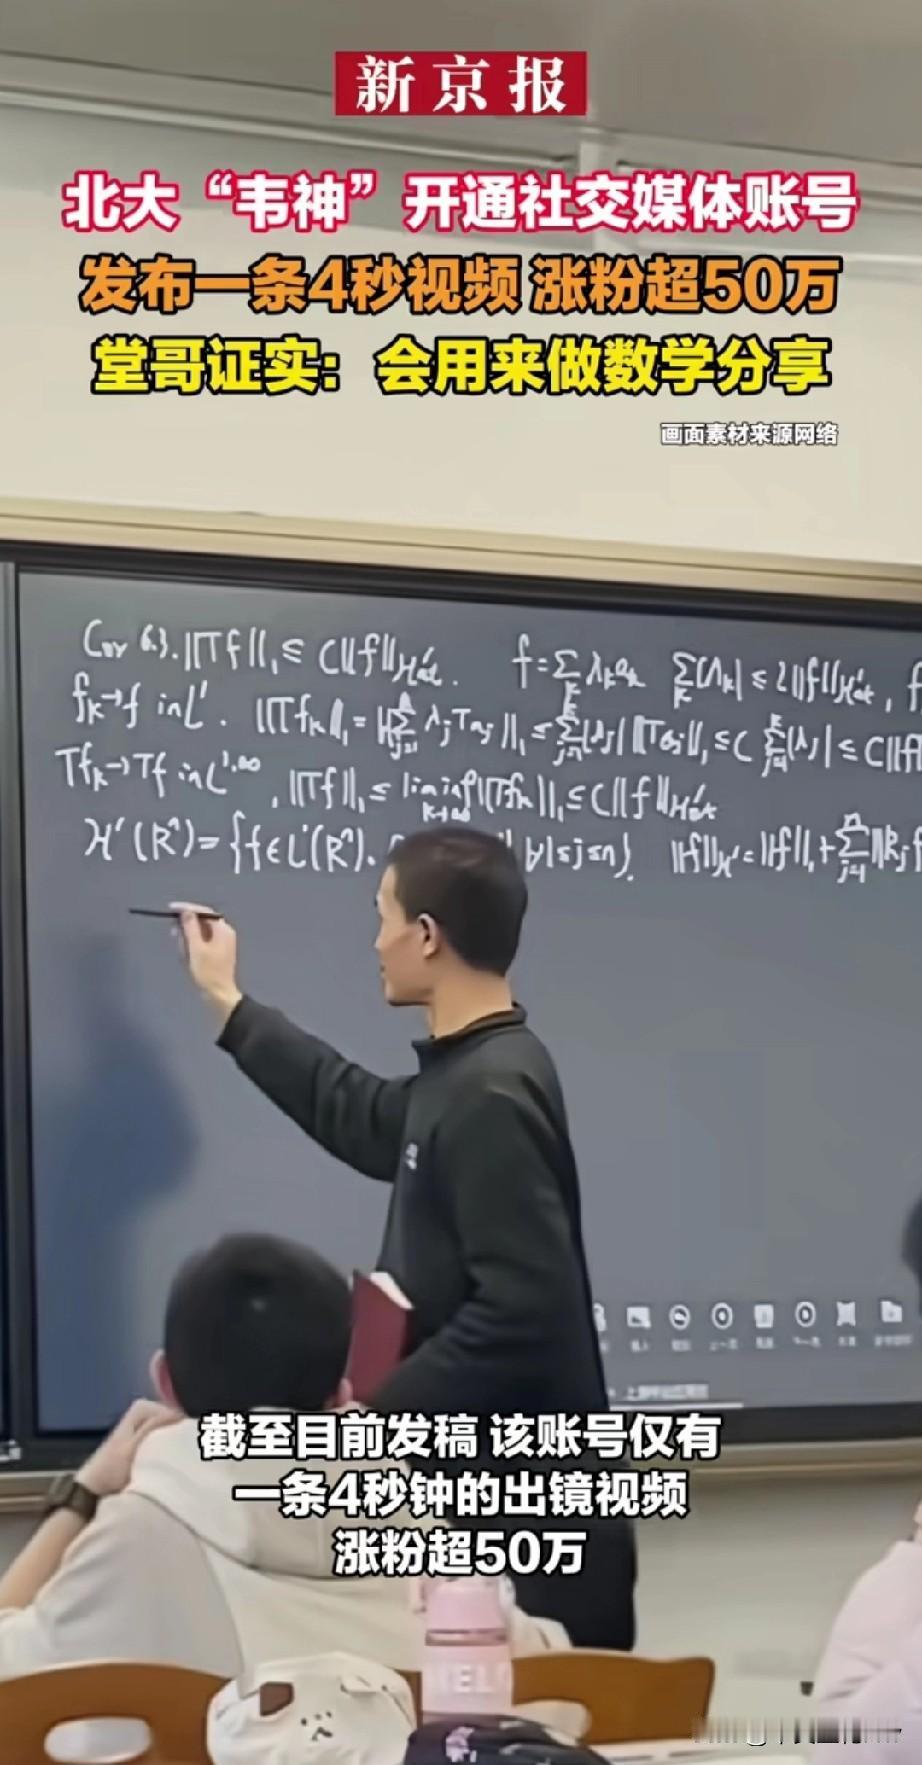 新京报
北大“韦神”开通社交媒体账号
发布一条4秒视频 涨粉超50万
堂哥证实：会用来做数学分享
画面素材来源网络
Cor 6.3. ||Tf||₁ ≤ C||f||_H¹at. f=∑_k λ_k a_k ∑_k |λ_k| ≤ 2||f||_H¹at, f
f_k→f in L¹. ||Tf_k||₁ = ||∑_{j=1}^k λ_j Ta_j||₁ ≤ ∑_{j=1}^k |λ_j| ||Ta_j||₁ ≤ C ∑_{j=1}^k |λ_j| ≤ C||f||
Tf_k→Tf in L^{1,∞}, ||Tf||₁ ≤ liminf_{k→∞} ||Tf_k||₁ ≤ C||f||_H¹at
H¹(Rⁿ)={f∈L¹(Rⁿ). ∀1≤j≤n}. ||f||_H¹=||f||₁+∑_{j=1}^n ||R_j f
截至目前发稿 该账号仅有
一条4秒钟的出镜视频
涨粉超50万
HELL